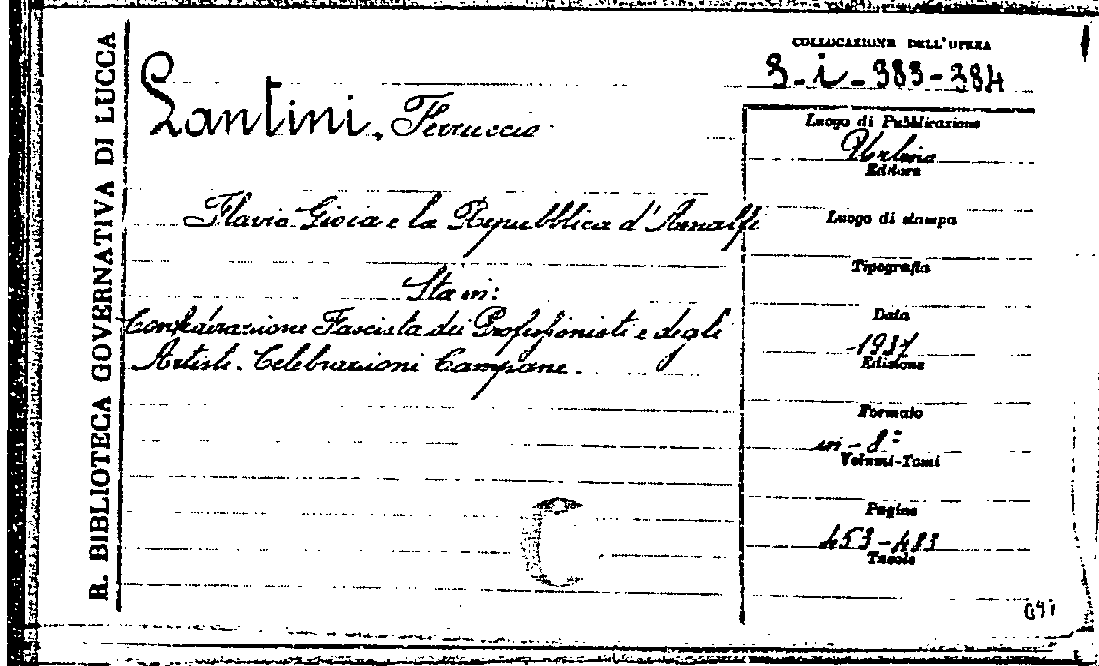 R. BIBLIOTECA GOVERNATIVA DI LUCCA
COLLOCAZIONE DELL'OPERA
3-i-383-384
Lantini, Ferruccio
Luogo di Pubblicazione
Urbino
Editore
Flavio Gioia e la Repubblica d'Amalfi
Luogo di stampa
Tipografia
Sta in:
Confederazione Fascista dei Professionisti e degli
Artisti. Celebrazioni Campane.
Data
1937
Edizione
Formato
in-8º
Volumi-Tomi
Pagine
453-483
Tavole